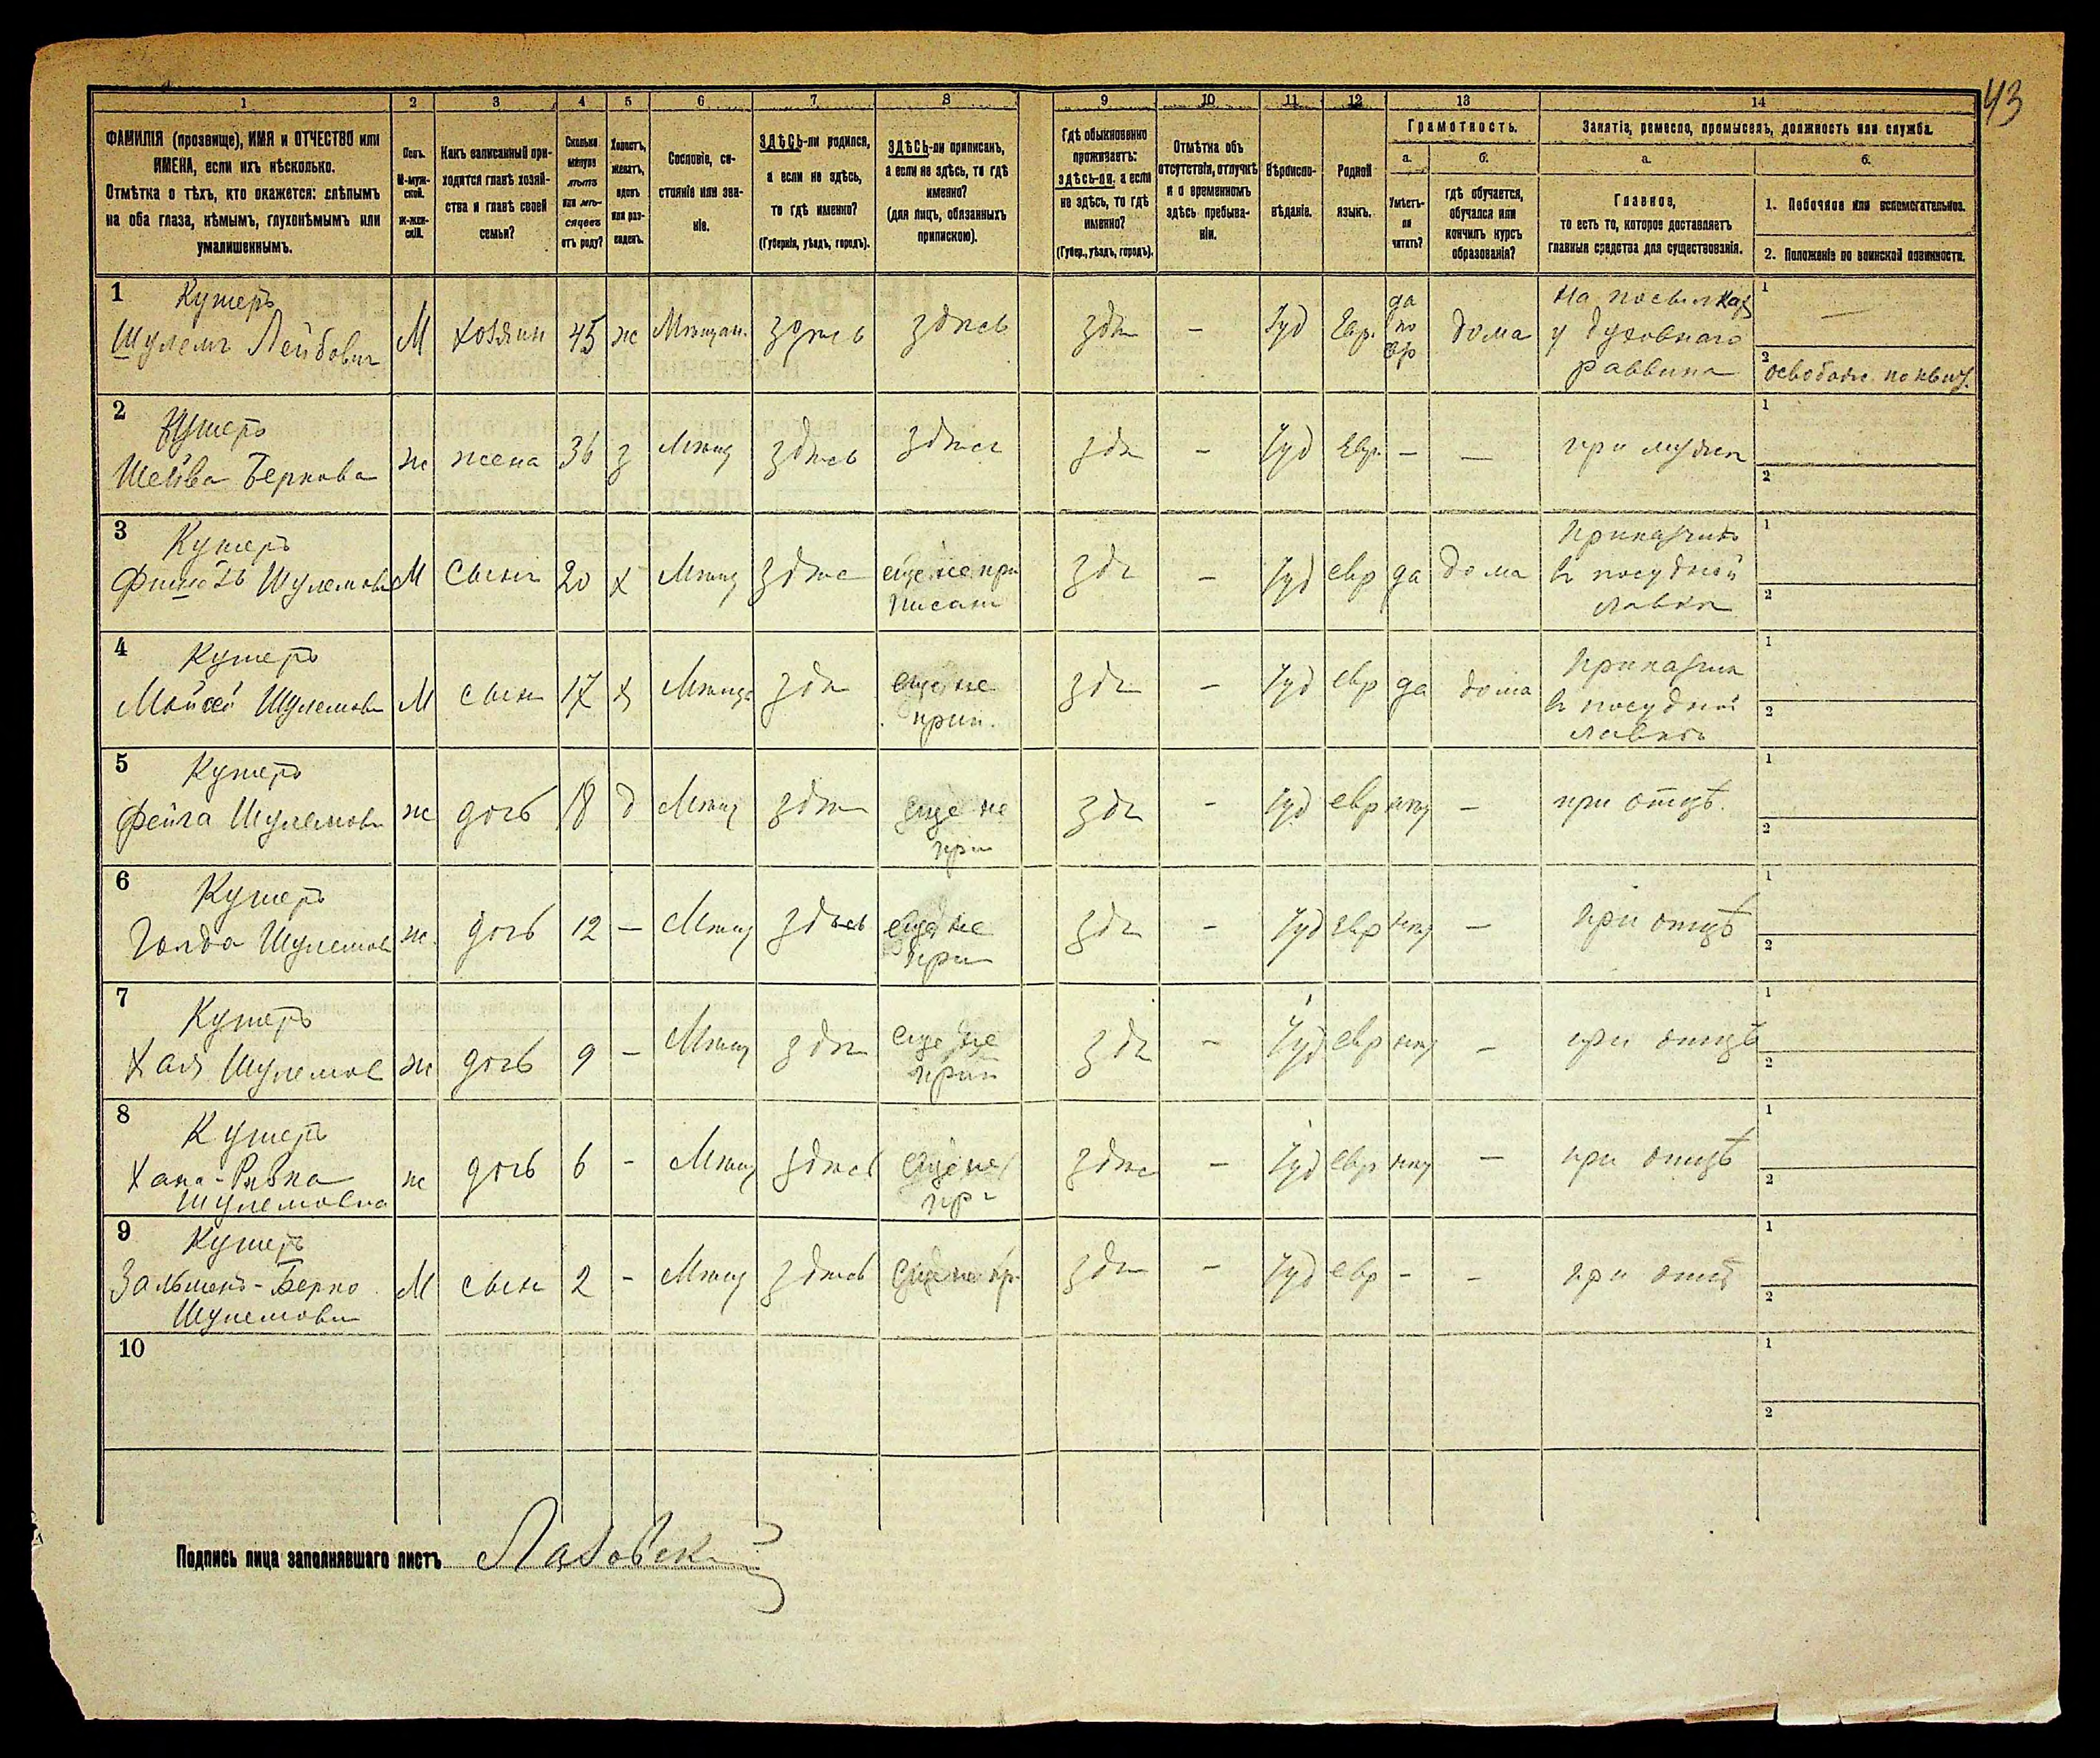 43
1 2 3 4 5 6 7 8 9 10 11 12 13 14
ФАМИЛІЯ (прозвище), ИМЯ и ОТЧЕСТВО или
ИМЕНА, если ихъ нѣсколько.
Отмѣтка о тѣхъ, кто окажется: слѣпымъ
на оба глаза, нѣмымъ, глухонѣмымъ или
умалишеннымъ.
Полъ.
М-муж-
ской.
Ж-жен-
скій.
Какъ записанный при-
ходится главѣ хозяй-
ства и главѣ своей
семьи?
Сколько
минуло
лѣтъ
или мѣ-
сяцевъ
отъ роду?
Холостъ,
женатъ,
вдовъ
или раз-
веденъ.
Сословіе, со-
стояніе или зва-
ніе.
ЗДѢСЬ-ли родился,
а если не здѣсь,
то гдѣ именно?
(Губернія, уѣздъ, городъ).
ЗДѢСЬ-ли приписанъ,
а если не здѣсь, то гдѣ
именно?
(для лицъ, обязанныхъ
припискою).
Гдѣ обыкновенно
проживаетъ:
здѣсь-ли, а если
не здѣсь, то гдѣ
именно?
(Губер., уѣздъ, городъ).
Отмѣтка объ
отсутствіи, отлучкѣ
и о временномъ
здѣсь пребыва-
ніи.
Вѣроиспо-
вѣданіе.
Родной
языкъ.
Грамотность.
а. б.
Умѣетъ-
ли
читать?
гдѣ обучается,
обучался или
кончилъ курсъ
образованія?
Занятіе, ремесло, промыселъ, должность или служба.
а. б.
Главное,
то есть то, которое доставляетъ
главныя средства для существованія.
1. Побочное или вспомогательное.
2. Положеніе по воинской повинности.
1 Кушеръ
Шулемъ Лейбович М хозяин 45 ж Мѣщан. здѣсь здѣсь здѣ — Iуд Евр. да по евр дома На посылках у духовнаго раввина 1 —
2 освобожд. по
2 Кушеръ
Шейва Беркова ж жена 36 з Мѣщ здѣсь здѣсь здѣ — Iуд Евр. — — при мужѣ 1 2
3 Кушеръ
Шулемов М Сынъ 20 х Мѣщ здѣс еще не при писан здѣ — Iуд евр да дома Приказчик в посудной лавкѣ 1 2
4 Кушеръ
Мойсей Шулемов М сын 17 х Мѣщ здѣ еще не прип. здѣ — Iуд евр да дома Приказчик в посудной лавкѣ 1 2
5 Кушеръ
Фейга Шулемов ж дочь 18 д Мѣщ здѣ еще не при здѣ — Iуд евр нѣт — при отцѣ. 1 2
6 Кушеръ
Голда Шулемов ж. дочь 12 — Мѣщ здѣсь еще не при здѣ — Iуд евр нѣт — при отцѣ 1 2
7 Кушеръ
Хая Шулемов ж дочь 9 — Мѣщ здѣ еще не прип здѣ — Iуд евр нѣт — при отцѣ 1 2
8 Кушеръ
Хана-Ривка
Шулемовна ж дочь 6 — Мѣщ здѣсь еще не пр здѣс — Iуд евр нѣт — при отцѣ 1 2
9 Кушеръ
Зальменъ-Берко
Шулемови М сын 2 — Мѣщ здѣсь еще не пр. здѣ — Iуд евр — — при отцѣ 1 2
10 1 2
Подпись лица заполнявшаго листъ